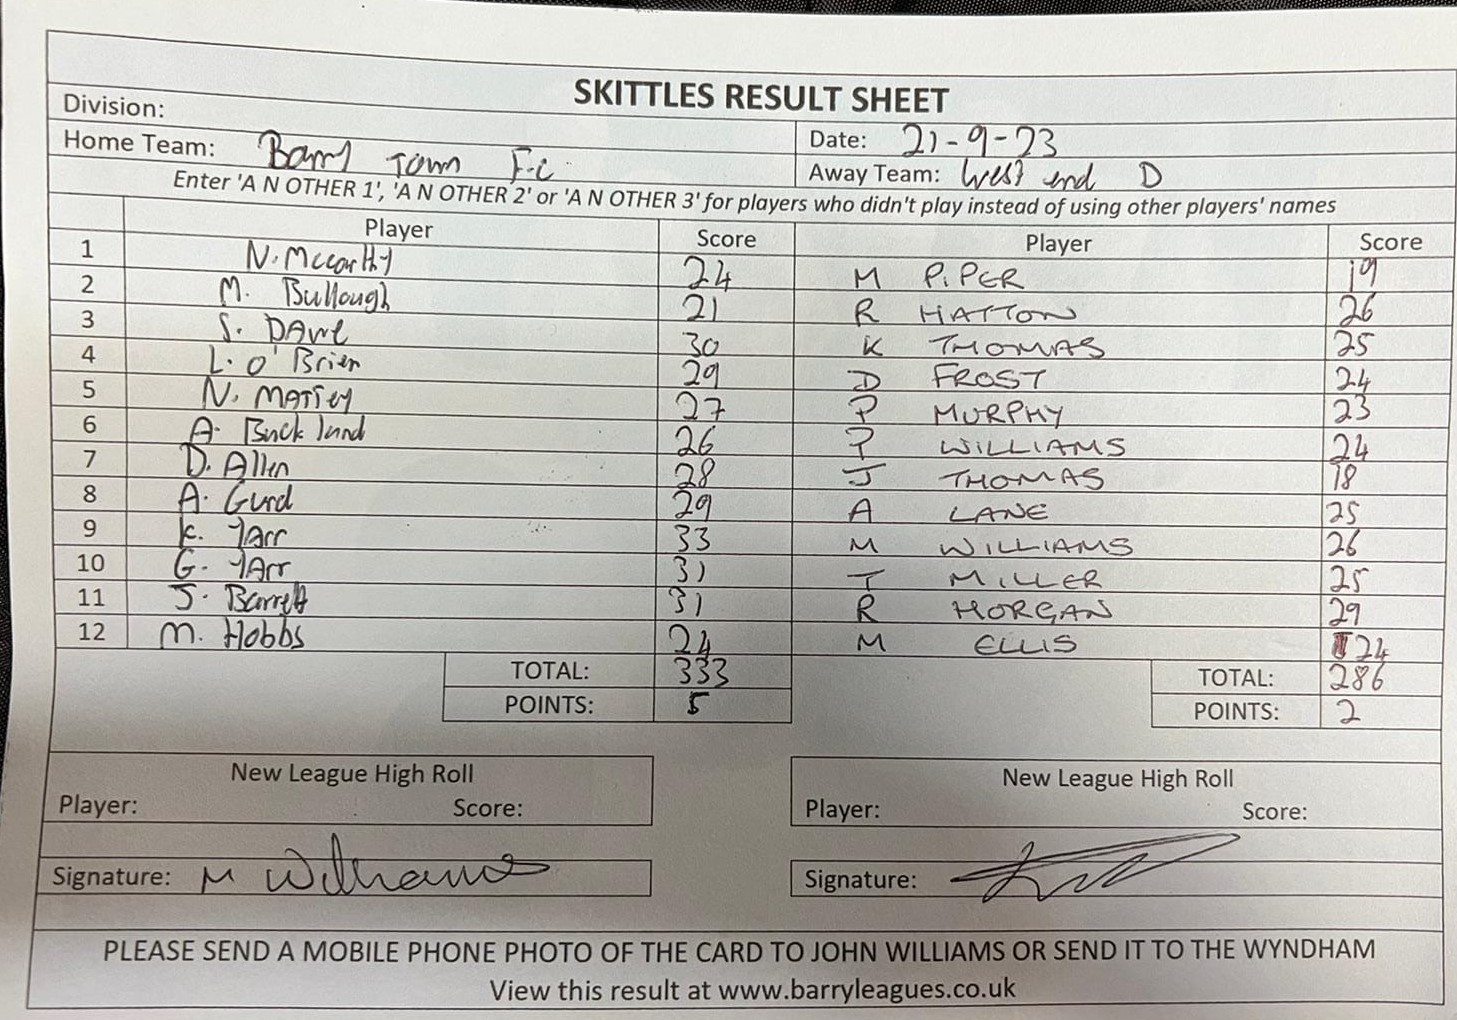 SKITTLES RESULT SHEET
Division:
Home Team: Barry Town F.C Date: 21-9-23
Away Team: West end D
Enter 'A N OTHER 1', 'A N OTHER 2' or 'A N OTHER 3' for players who didn't play instead of using other players' names
Player Score Player Score
1 N. Mccarthy 24 M PIPER 19
2 M. Bullough 21 R HATTON 26
3 S. DAWE 30 K THOMAS 25
4 L. O'Brien 29 D FROST 24
5 N. MATTEY 27 P MURPHY 23
6 A. Buckland 26 P WILLIAMS 24
7 D. Allen 28 J THOMAS 18
8 A. Gurd 29 A LANE 25
9 K. 33 M WILLIAMS 26
10 G. 31 T MILLER 25
11 J. Barrett 31 R MORGAN 29
12 M. Hobbs 24 M ELLIS 24
TOTAL: 333 TOTAL: 286
POINTS: 5 POINTS: 2
New League High Roll New League High Roll
Player: Score: Player: Score:
Signature: M Williams Signature:
PLEASE SEND A MOBILE PHONE PHOTO OF THE CARD TO JOHN WILLIAMS OR SEND IT TO THE WYNDHAM
View this result at www.barryleagues.co.uk